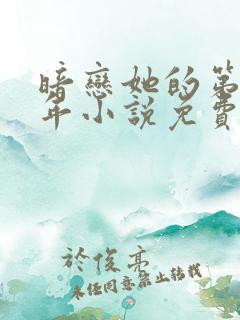 暗戀她的第
年小說免費
於俊亮
未經同意禁止轉載